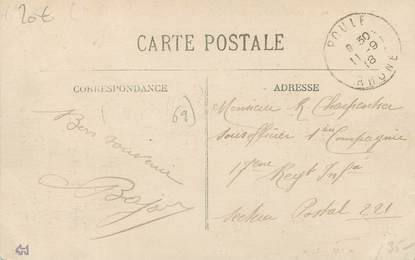 20€
CARTE POSTALE
POULE
8 30
11 -9
18
RHONE
CORRESPONDANCE
69
Bon souvenir
ADRESSE
Monsieur Charpentier
sous officier 1ère Compagnie
17eme Regt Infie
secteur Postal 221